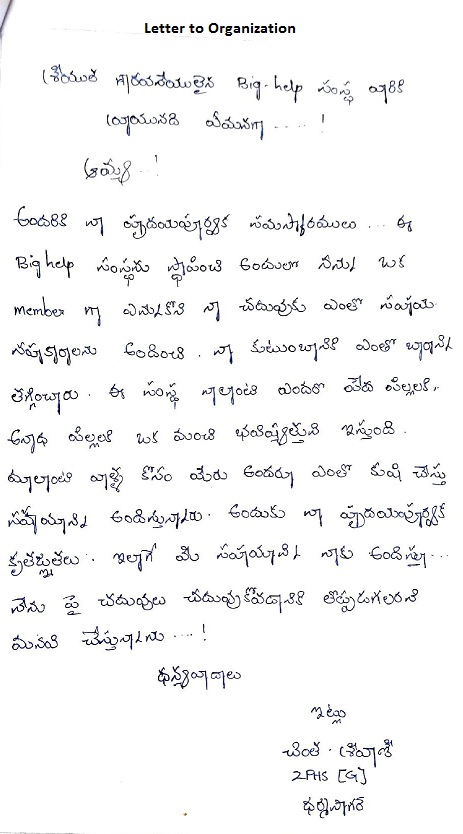 Letter to Organization
శ్రీయుత గౌరవనీయులైన Big-help సంస్థ వారికి
వ్రాయునది ఏమనగా ..... !
అమ్మా ..!
అందరికి నా హృదయపూర్వక నమస్కారములు ... ఈ
Big help సంస్థను స్థాపించి అందులో నన్ను ఒక
member గా ఎన్నుకొని నా చదువుకు ఎంతో సహాయ
సహకారాలను అందించి . నా కుటుంబానికి ఎంతో భారాన్ని
తగ్గించారు . ఈ సంస్థ నాలాంటి ఎందరో పేద పిల్లలకి,
అనాధ పిల్లలకి ఒక మంచి భవిష్యత్తుని ఇస్తుంది .
మాలాంటి వాళ్ళ కోసం మీరు అందరూ ఎంతో కృషి చేస్తు
సహాయాన్ని అందిస్తున్నారు . అందుకు నా హృదయపూర్వక
కృతజ్ఞతలు . ఇలాగే మీ సహాయాన్ని నాకు అందిస్తూ ...
నేను పై చదువులు చదువుకోవడానికి తోడ్పడగలరని
మనవి చేస్తున్నాను .... !
ధన్యవాదాలు
ఇట్లు
చింత . శ్రీవాణి
2PHS [G]